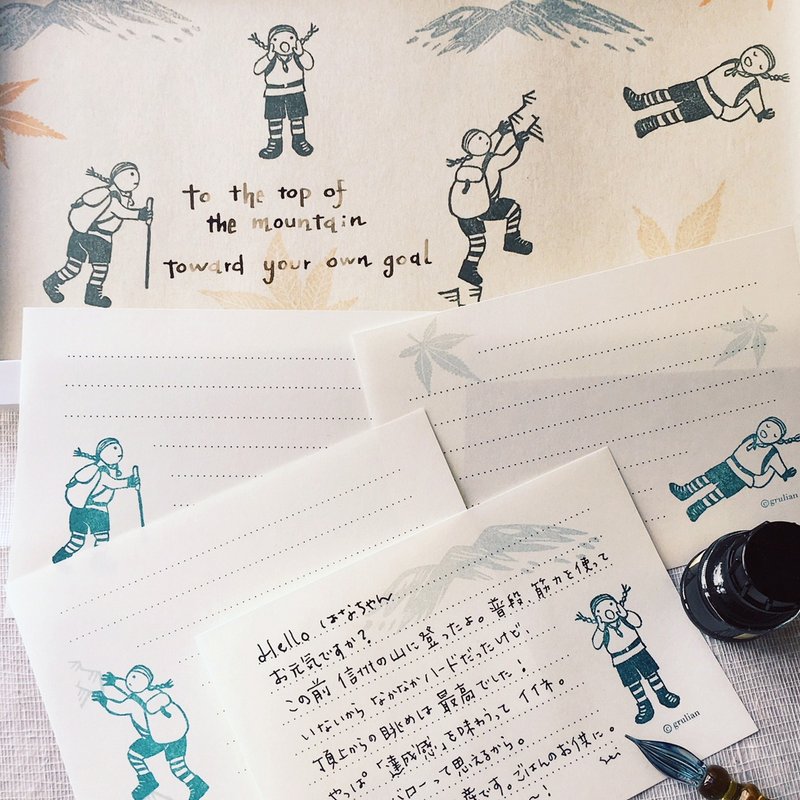 to the top of
the mountain
toward your own goal
©grulian
Hello はなちゃん
お元気ですか?
この前 信州の山に登ったよ。普段、筋力を使って
いないから なかなかハードだったけど、
頂上からの眺めは 最高でした!
やっぱ「達成感」を味わうって イイネ。
バローって思えるから。
産です。ごはんのお供に。
～!
©grulian